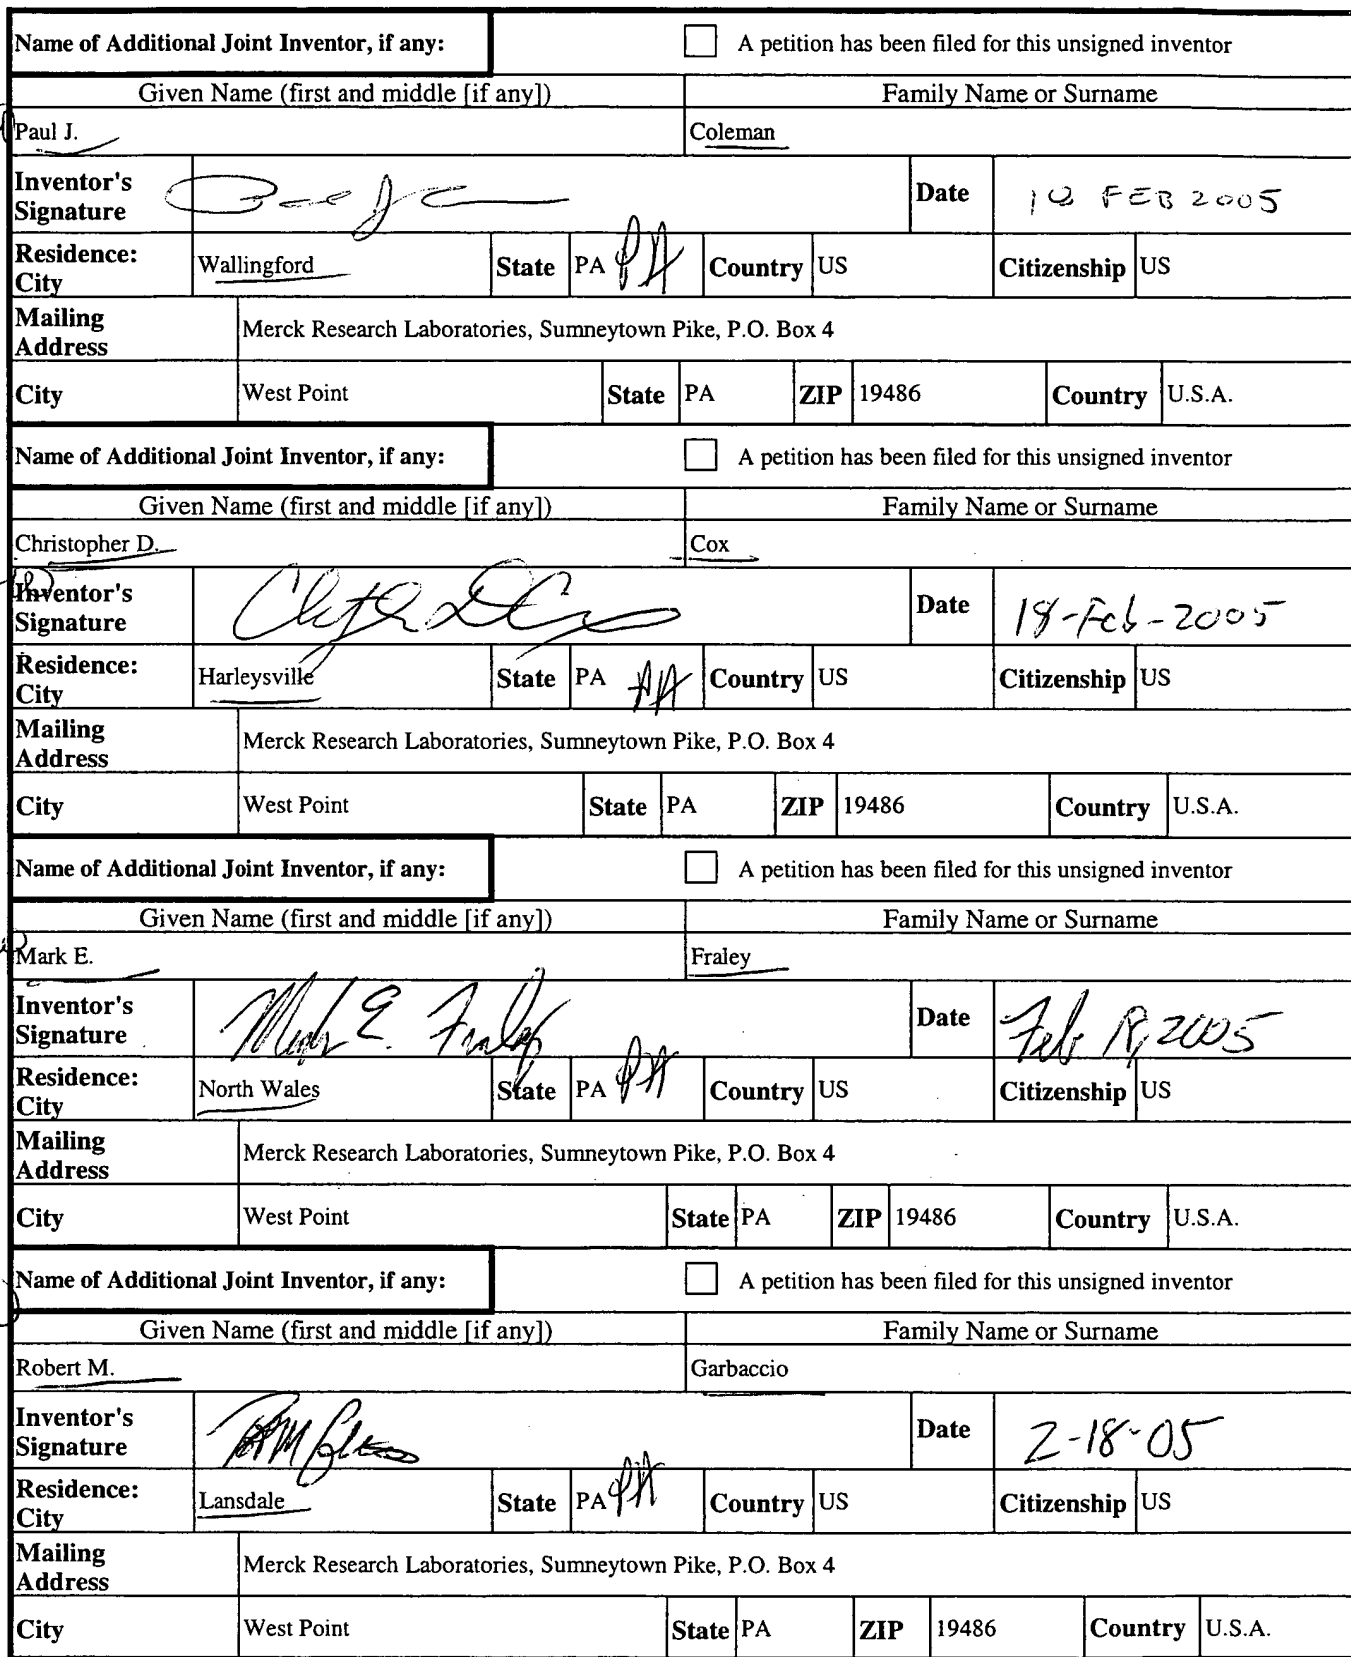 Name of Additional Joint Inventor, if any: A petition has been filed for this unsigned inventor
Given Name (first and middle [if any]) Family Name or Surname
Paul J. Coleman
Inventor's Signature Date FEB 2005
Residence: City Wallingford State PA PA Country US Citizenship US
Mailing Address Merck Research Laboratories, Sumneytown Pike, P.O. Box 4
City West Point State PA ZIP 19486 Country U.S.A.
Name of Additional Joint Inventor, if any: A petition has been filed for this unsigned inventor
Given Name (first and middle [if any]) Family Name or Surname
Christopher D. Cox
Inventor's Signature Date 18-Feb-2005
Residence: City Harleysville State PA PA Country US Citizenship US
Mailing Address Merck Research Laboratories, Sumneytown Pike, P.O. Box 4
City West Point State PA ZIP 19486 Country U.S.A.
Name of Additional Joint Inventor, if any: A petition has been filed for this unsigned inventor
Given Name (first and middle [if any]) Family Name or Surname
Mark E. Fraley
Inventor's Signature Mark E. Fraley Date Feb 2005
Residence: City North Wales State PA PA Country US Citizenship US
Mailing Address Merck Research Laboratories, Sumneytown Pike, P.O. Box 4
City West Point State PA ZIP 19486 Country U.S.A.
Name of Additional Joint Inventor, if any: A petition has been filed for this unsigned inventor
Given Name (first and middle [if any]) Family Name or Surname
Robert M. Garbaccio
Inventor's Signature Date 2-18-05
Residence: City Lansdale State PA PA Country US Citizenship US
Mailing Address Merck Research Laboratories, Sumneytown Pike, P.O. Box 4
City West Point State PA ZIP 19486 Country U.S.A.